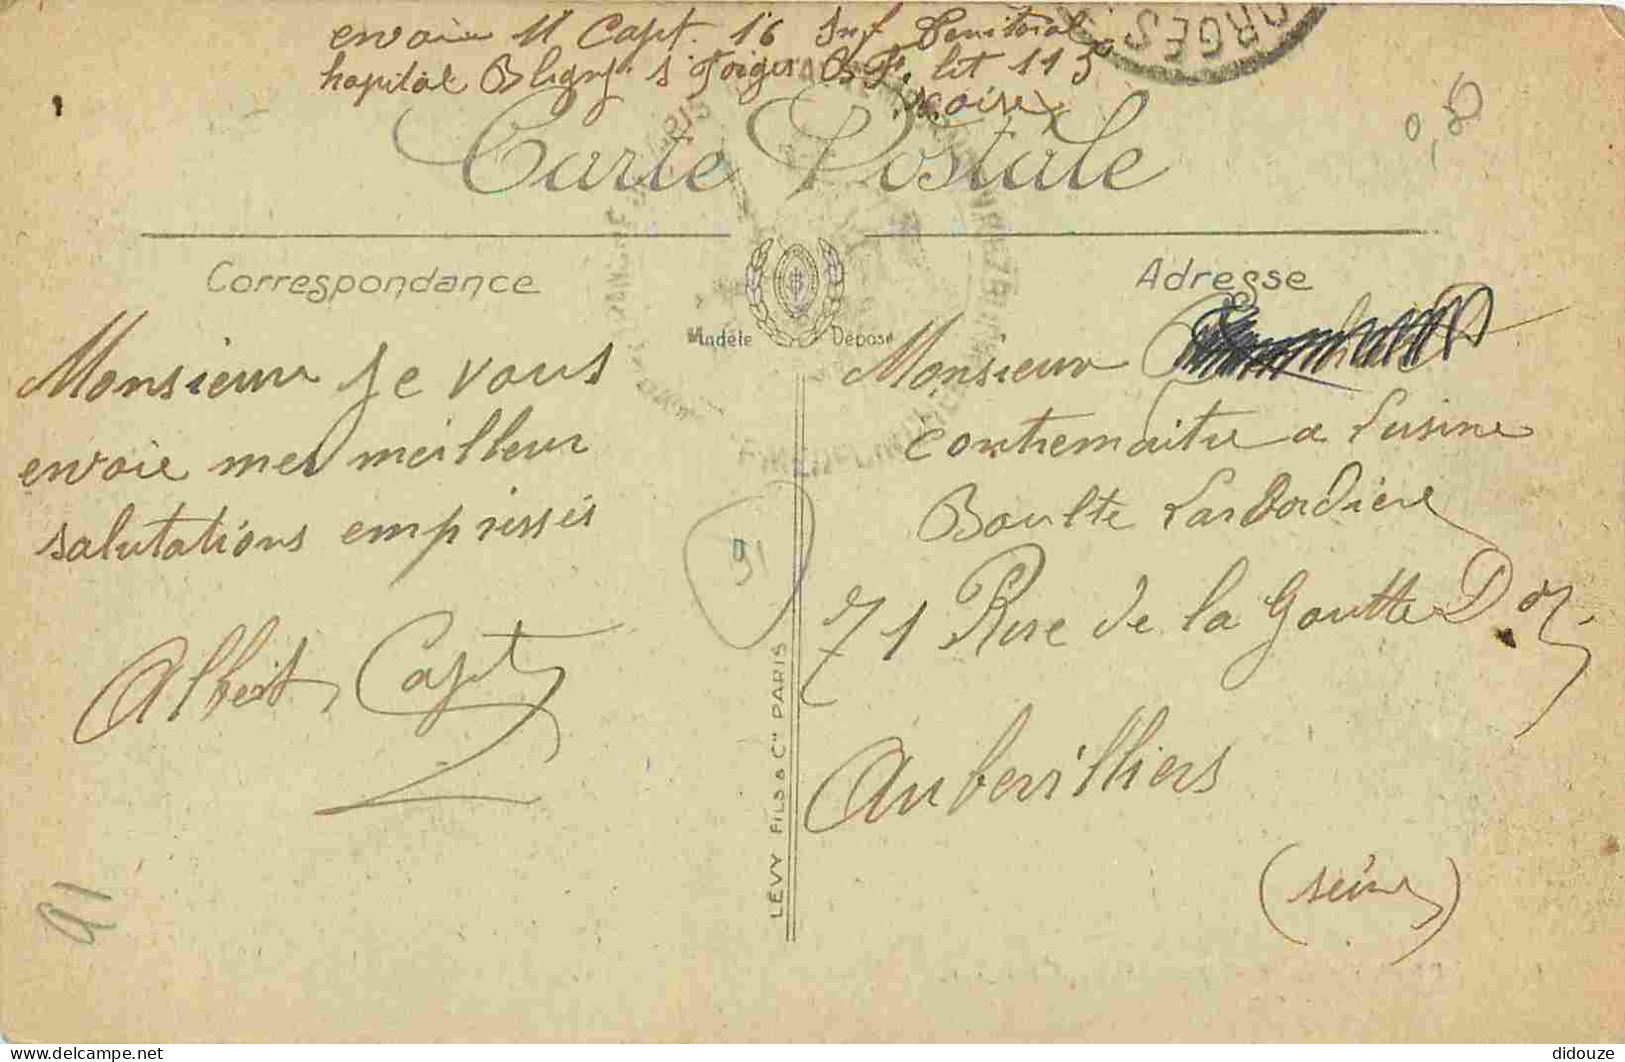 envoie M Capt. 16 Inf Territorial
hopital Bligny s Forges lit 115
S. oise
ORGES
Carte Postale
Correspondance
Adresse
Modèle Déposé
Monsieur je vous
envoie mes meilleur
salutations empressés
Albert Capt
Monsieur
contremaitre a Lusine
Boulte Larbodiere
71 Rue de la Goutte D or
Aubervilliers
(seine)
LEVY FILS & Cie PARIS
91
91
0,50
didouze